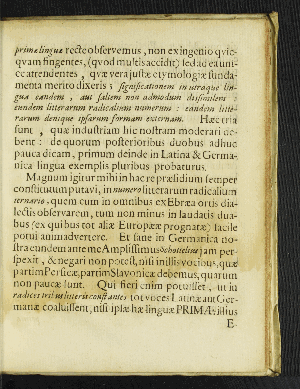 primæ linguæ recte observemus, non ex ingenio qvic-
qvam fingentes, (qvod multis accidit) sed ad ea uni-
ce attendentes, qvæ vera justæ etymologiæ funda-
menta merito dixeris; significationem in utraque lin-
gua eandem, aut saltem non admodum dissimilem:
eundem litterarum radicalium numerum: eandem litte-
rarum denique ipsarum formam externam. Hæc tria
sunt, quæ industriam hic nostram moderari de-
bent: de quorum posterioribus duobus adhuc
pauca dicam, primum deinde in Latina & Germa-
nica lingua exemplis pluribus probaturus.
Magnum igitur mihi in hac re præsidium semper
constitutum putavi, in numero litterarum radicalium
ternario, quem cum in omnibus exEbræa ortis dia-
lectis observarem, tum non minus in laudatis dua-
bus (ex quibus tot aliæ Europææ prognatæ) facile
potui animadvertere. Et sane in Germanica no-
stra eundem ante me Amplissimus Schottelius jam per-
spexit, & negari non potest, nisi in illis vocibus, quæ
partim Persicæ, partim Slavonicæ debemus, quarum
non paucæ sunt. Qui fieri enim potuisset, ut in
radices trilitteris constantes tot voces Latinæ aut Ger-
manæ coaluissent, nisi ipsæ hæ linguæ PRIMÆ illius
E